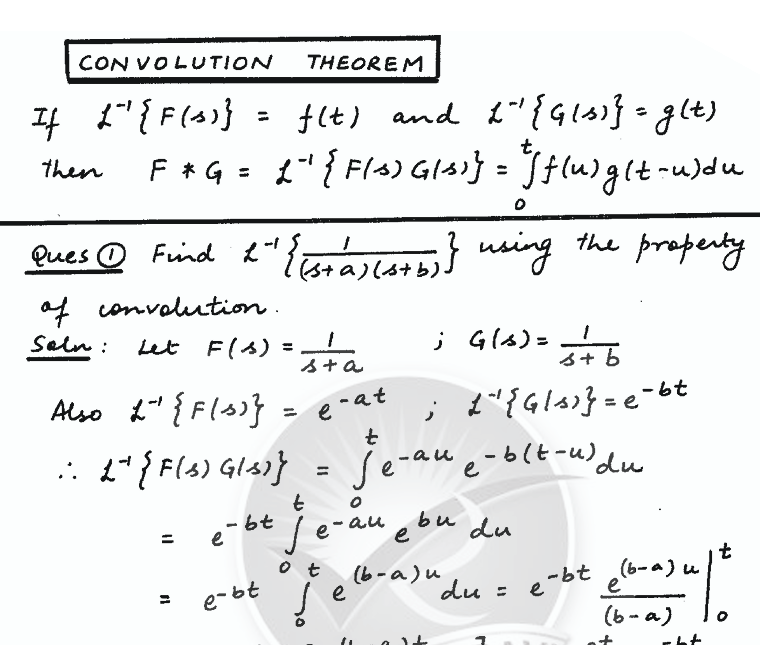 CONVOLUTION THEOREM
If L⁻¹{F(s)} = f(t) and L⁻¹{G(s)} = g(t)
then F * G = L⁻¹{F(s) G(s)} = ∫₀ᵗ f(u) g(t-u)du
Ques ① Find L⁻¹{1/((s+a)(s+b))} using the property
of convolution.
Soln : Let F(s) = 1/(s+a) ; G(s) = 1/(s+b)
Also L⁻¹{F(s)} = e^(-at) ; L⁻¹{G(s)} = e^(-bt)
∴ L⁻¹{F(s) G(s)} = ∫₀ᵗ e^(-au) e^(-b(t-u)) du
= e^(-bt) ∫₀ᵗ e^(-au) e^(bu) du
= e^(-bt) ∫₀ᵗ e^((b-a)u) du = e^(-bt) e^((b-a)u)/(b-a) |₀ᵗ